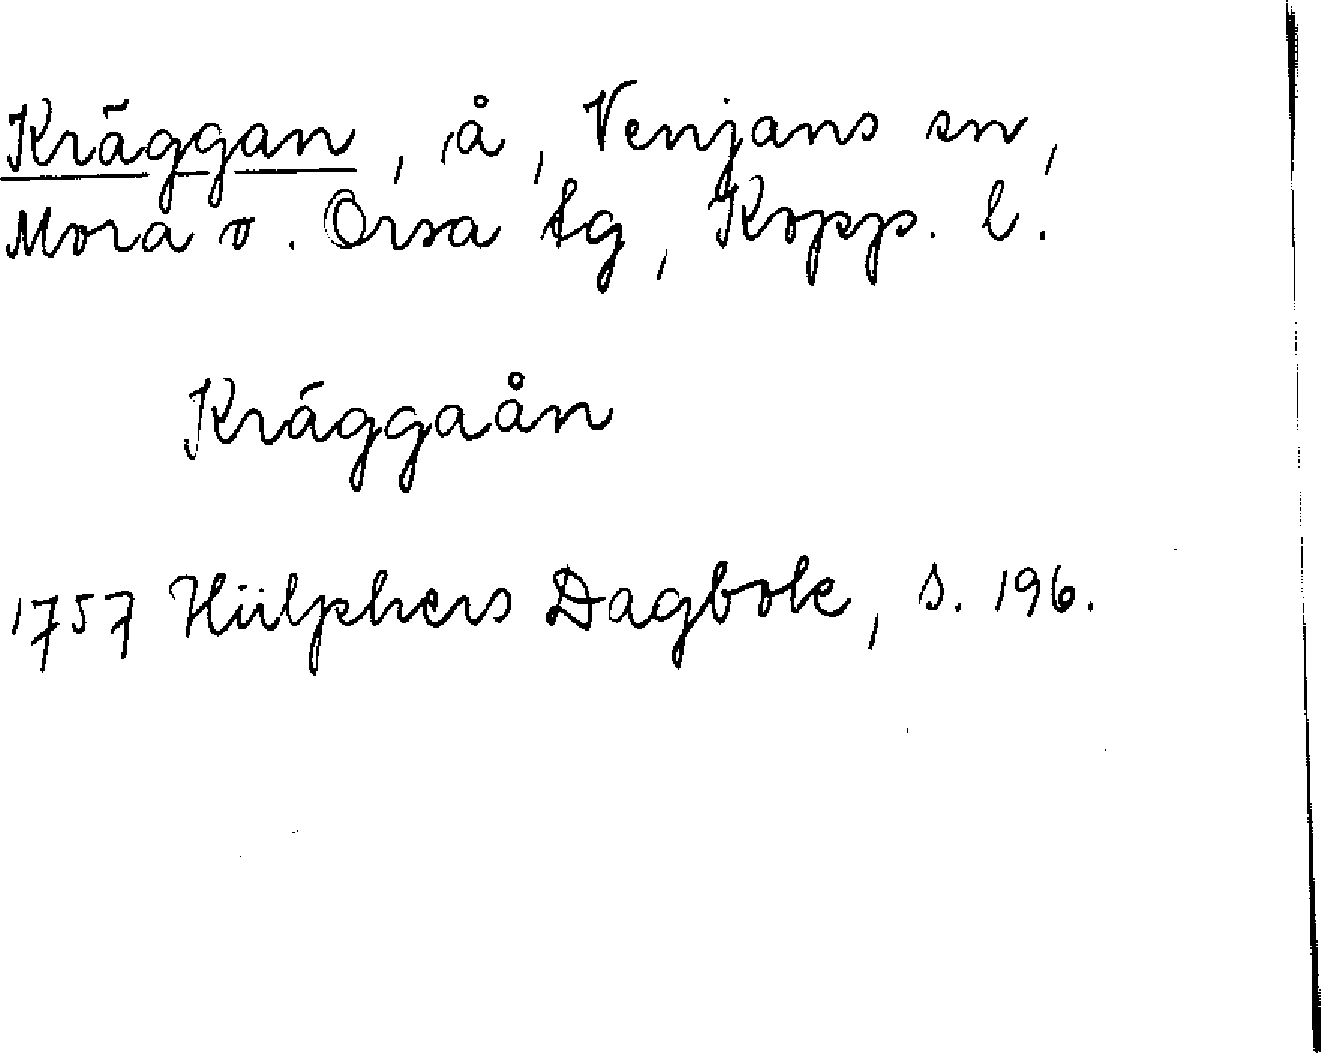 Kräggan, å, Venjans sn,
Mora o. Orsa tg, Kopp. l.
Kräggaån
1757 Hülphers Dagbok, s. 196.